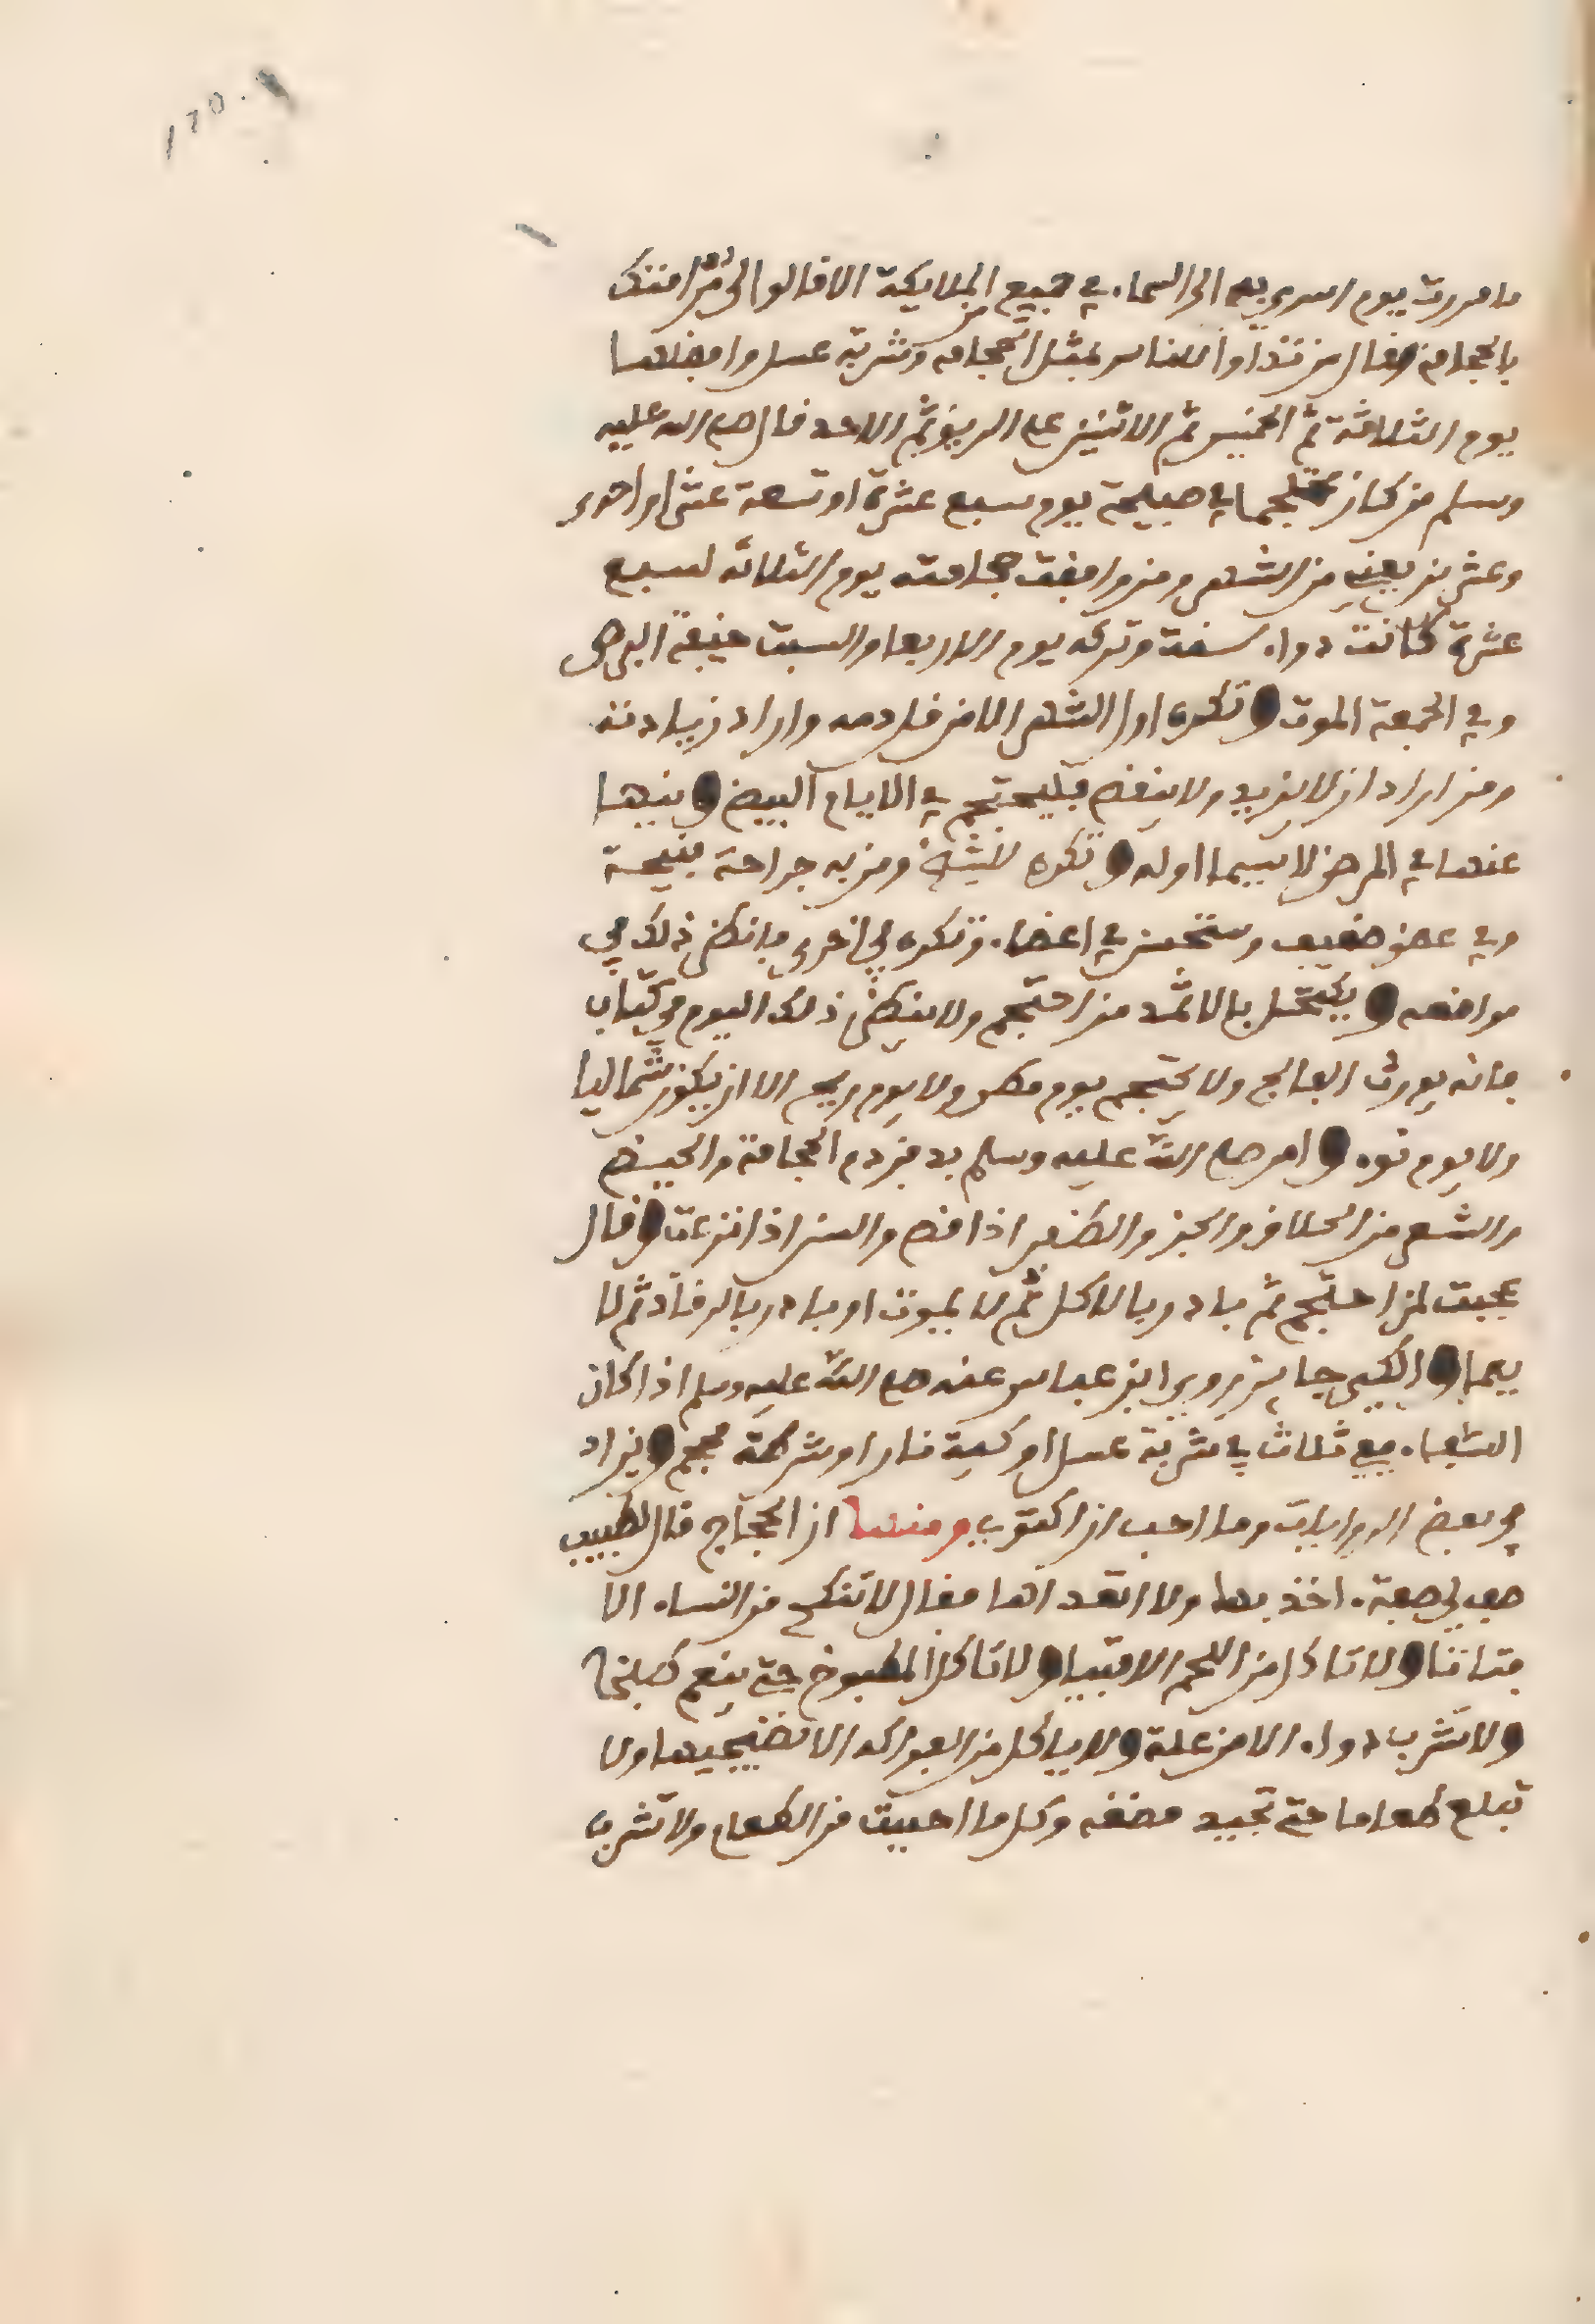 ما مررت يوم اسري بي الى السماء في جميع الملايكة الا قالوا لي مر امتك
بالحجامة وقال من تداوا الناس بمثل الحجامة وشربة عسل وافضلها
يوم الثلاثة ثم الخميس ثم الاثنين على الريق ثم الاحد قال صلى الله عليه
وسلم من كان في صبيحة يوم سبع عشرة او تسعة عشر او احدى
وعشرين يعني من الشهر ومن وافقت حجامته يوم الثلاثة لسبع
عشرة كانت دواء سنة وتركه يوم الاربعا والسبت خيفة البرص
وفي الجمعة الموت وتكره اول الشهر الا من فار دمه واراد زيادته
ومن اراد ان لا يزيد ولا ينقص فليحتجم في الايام البيض وينهى
عنها في المرض لا سيما اوله وتكره للشيخ ومن به جراحة
وفي عضو ضعيف وستحسن في اعضاء وتكره في اخرى فانظر ذلك في
مواضعه ويكتحل بالاثمد من احتجم ولا ينظر ذلك اليوم في كتاب
فانه يورث الفالج ولا يحتجم يوم مطر ولا يوم ريح الا ان يكون شماليا
ولا يوم نوء وامر صلى الله عليه وسلم بدفن دم الحجامة والحيض
والشعر من الحلاق والجز والظفر اذا قص والسن اذا نزعت وقال
عجبت لمن احتجم ثم بادر بالاكل ثم لا يموت او بادر بالرقاد ثم لا
يعما والكي جايز روى ابن عباس عنه صلى الله عليه وسلم اذا كان
الشفاء ففي ثلاث في شربة عسل او كية نار او شرطة محجم ويزاد
في بعض الروايات وما احب ان اكتوي ومنها ان الحجاج قال لطبيب
صف لي صفة. اخذ بها ولا اتعداها فقال لا تنكح من النساء الا
فتاتا ولا تاكل من اللحم الا فتيا ولا تاكل المطبوخ حتى ينعم طبخا
ولا تشرب دواء الا من علة ولا ياكل من الفواكه الا نضيجها ولا
تبلع طعاما حتى تجيد مضغه وكل ما احببت من الطعام ولا تشرب